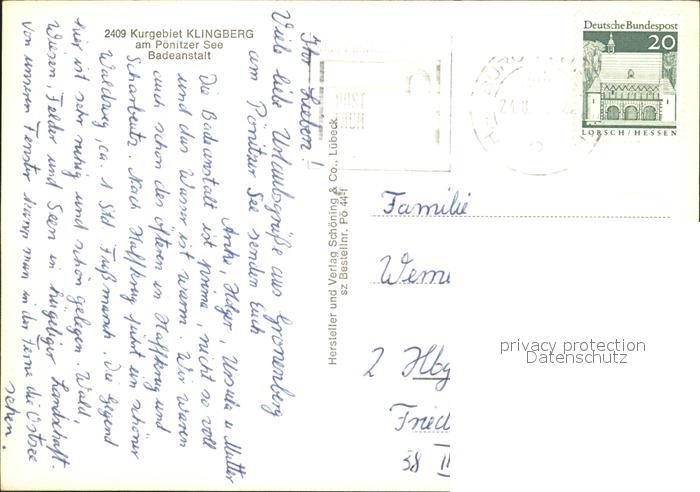 2409 Kurgebiet KLINGBERG
am Pönitzer See
Badeanstalt
Ihr Lieben!
Viele liebe Urlaubsgrüße aus Gronenberg
am Pönitzer See senden Euch
Anke, Holger, Ursula u. Mutter
Die Badeanstalt ist prima, nicht so voll
und das Wasser ist warm. Wir waren
auch schon des öfteren in Haffkrug und
Scharbeutz. Nach Haffkrug führt ein schöner
Waldweg, ca. 1 Std Fußmarsch. Die Gegend
hier ist sehr ruhig und schön gelegen. Wald,
Wiesen, Felder und Seen in hügeliger Landschaft.
Von unserem Fenster kann man in der Ferne die Ostsee
sehen.
Hersteller und Verlag Schöning & Co., Lübeck
sz Bestellnr. Pö 44
Deutsche Bundespost
20
LORSCH/HESSEN
Familie
Werne
2 Hbg
Fried
38
privacy protection
Datenschutz